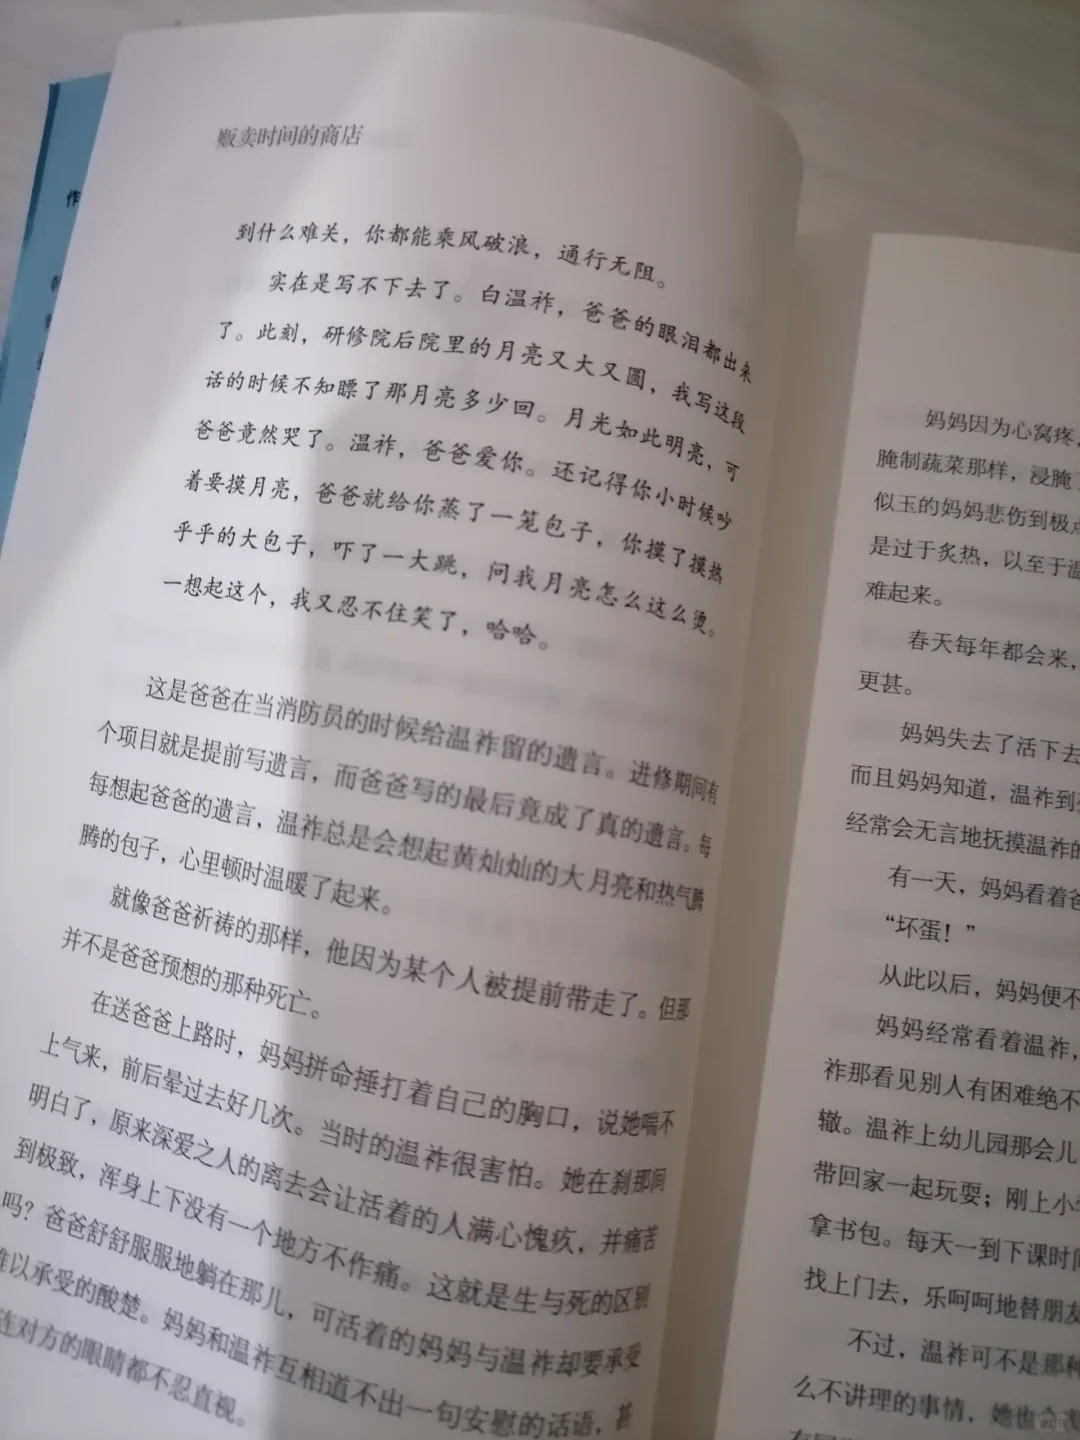 贩卖时间的商店
作
到什么难关，你都能乘风破浪，通行无阻。
实在是写不下去了。白温祚，爸爸的眼泪都出来
了。此刻，研修院后院里的月亮又大又圆，我写这段
话的时候不知瞟了那月亮多少回。月光如此明亮，可
爸爸竟然哭了。温祚，爸爸爱你。还记得你小时候吵
着要摸月亮，爸爸就给你蒸了一笼包子，你摸了摸热
乎乎的大包子，吓了一大跳，问我月亮怎么这么烫。
一想起这个，我又忍不住笑了，哈哈。
这是爸爸在当消防员的时候给温祚留的遗言。进修期间有
个项目就是提前写遗言，而爸爸写的最后竟成了真的遗言。每
每想起爸爸的遗言，温祚总是会想起黄灿灿的大月亮和热气腾
腾的包子，心里顿时温暖了起来。
就像爸爸祈祷的那样，他因为某个人被提前带走了。但那
并不是爸爸预想的那种死亡。
在送爸爸上路时，妈妈拼命捶打着自己的胸口，说她喘不
上气来，前后晕过去好几次。当时的温祚很害怕。她在刹那间
明白了，原来深爱之人的离去会让活着的人满心愧疚，并痛苦
到极致，浑身上下没有一个地方不作痛。这就是生与死的区别
吗？爸爸舒舒服服地躺在那儿，可活着的妈妈与温祚却要承受
难以承受的酸楚。妈妈和温祚互相道不出一句安慰的话语，甚
连对方的眼睛都不忍直视。
妈妈因为心窝疼，
腌制蔬菜那样，浸腌了
似玉的妈妈悲伤到极点
是过于炙热，以至于温
难起来。
春天每年都会来，
更甚。
妈妈失去了活下去
而且妈妈知道，温祚到
经常会无言地抚摸温祚的
有一天，妈妈看着爸
“坏蛋！”
从此以后，妈妈便不
妈妈经常看着温祚，
祚那看见别人有困难绝不
辙。温祚上幼儿园那会儿
带回家一起玩耍；刚上小
拿书包。每天一到下课时间
找上门去，乐呵呵地替朋友
不过，温祚可不是那种
么不讲理的事情，她也会